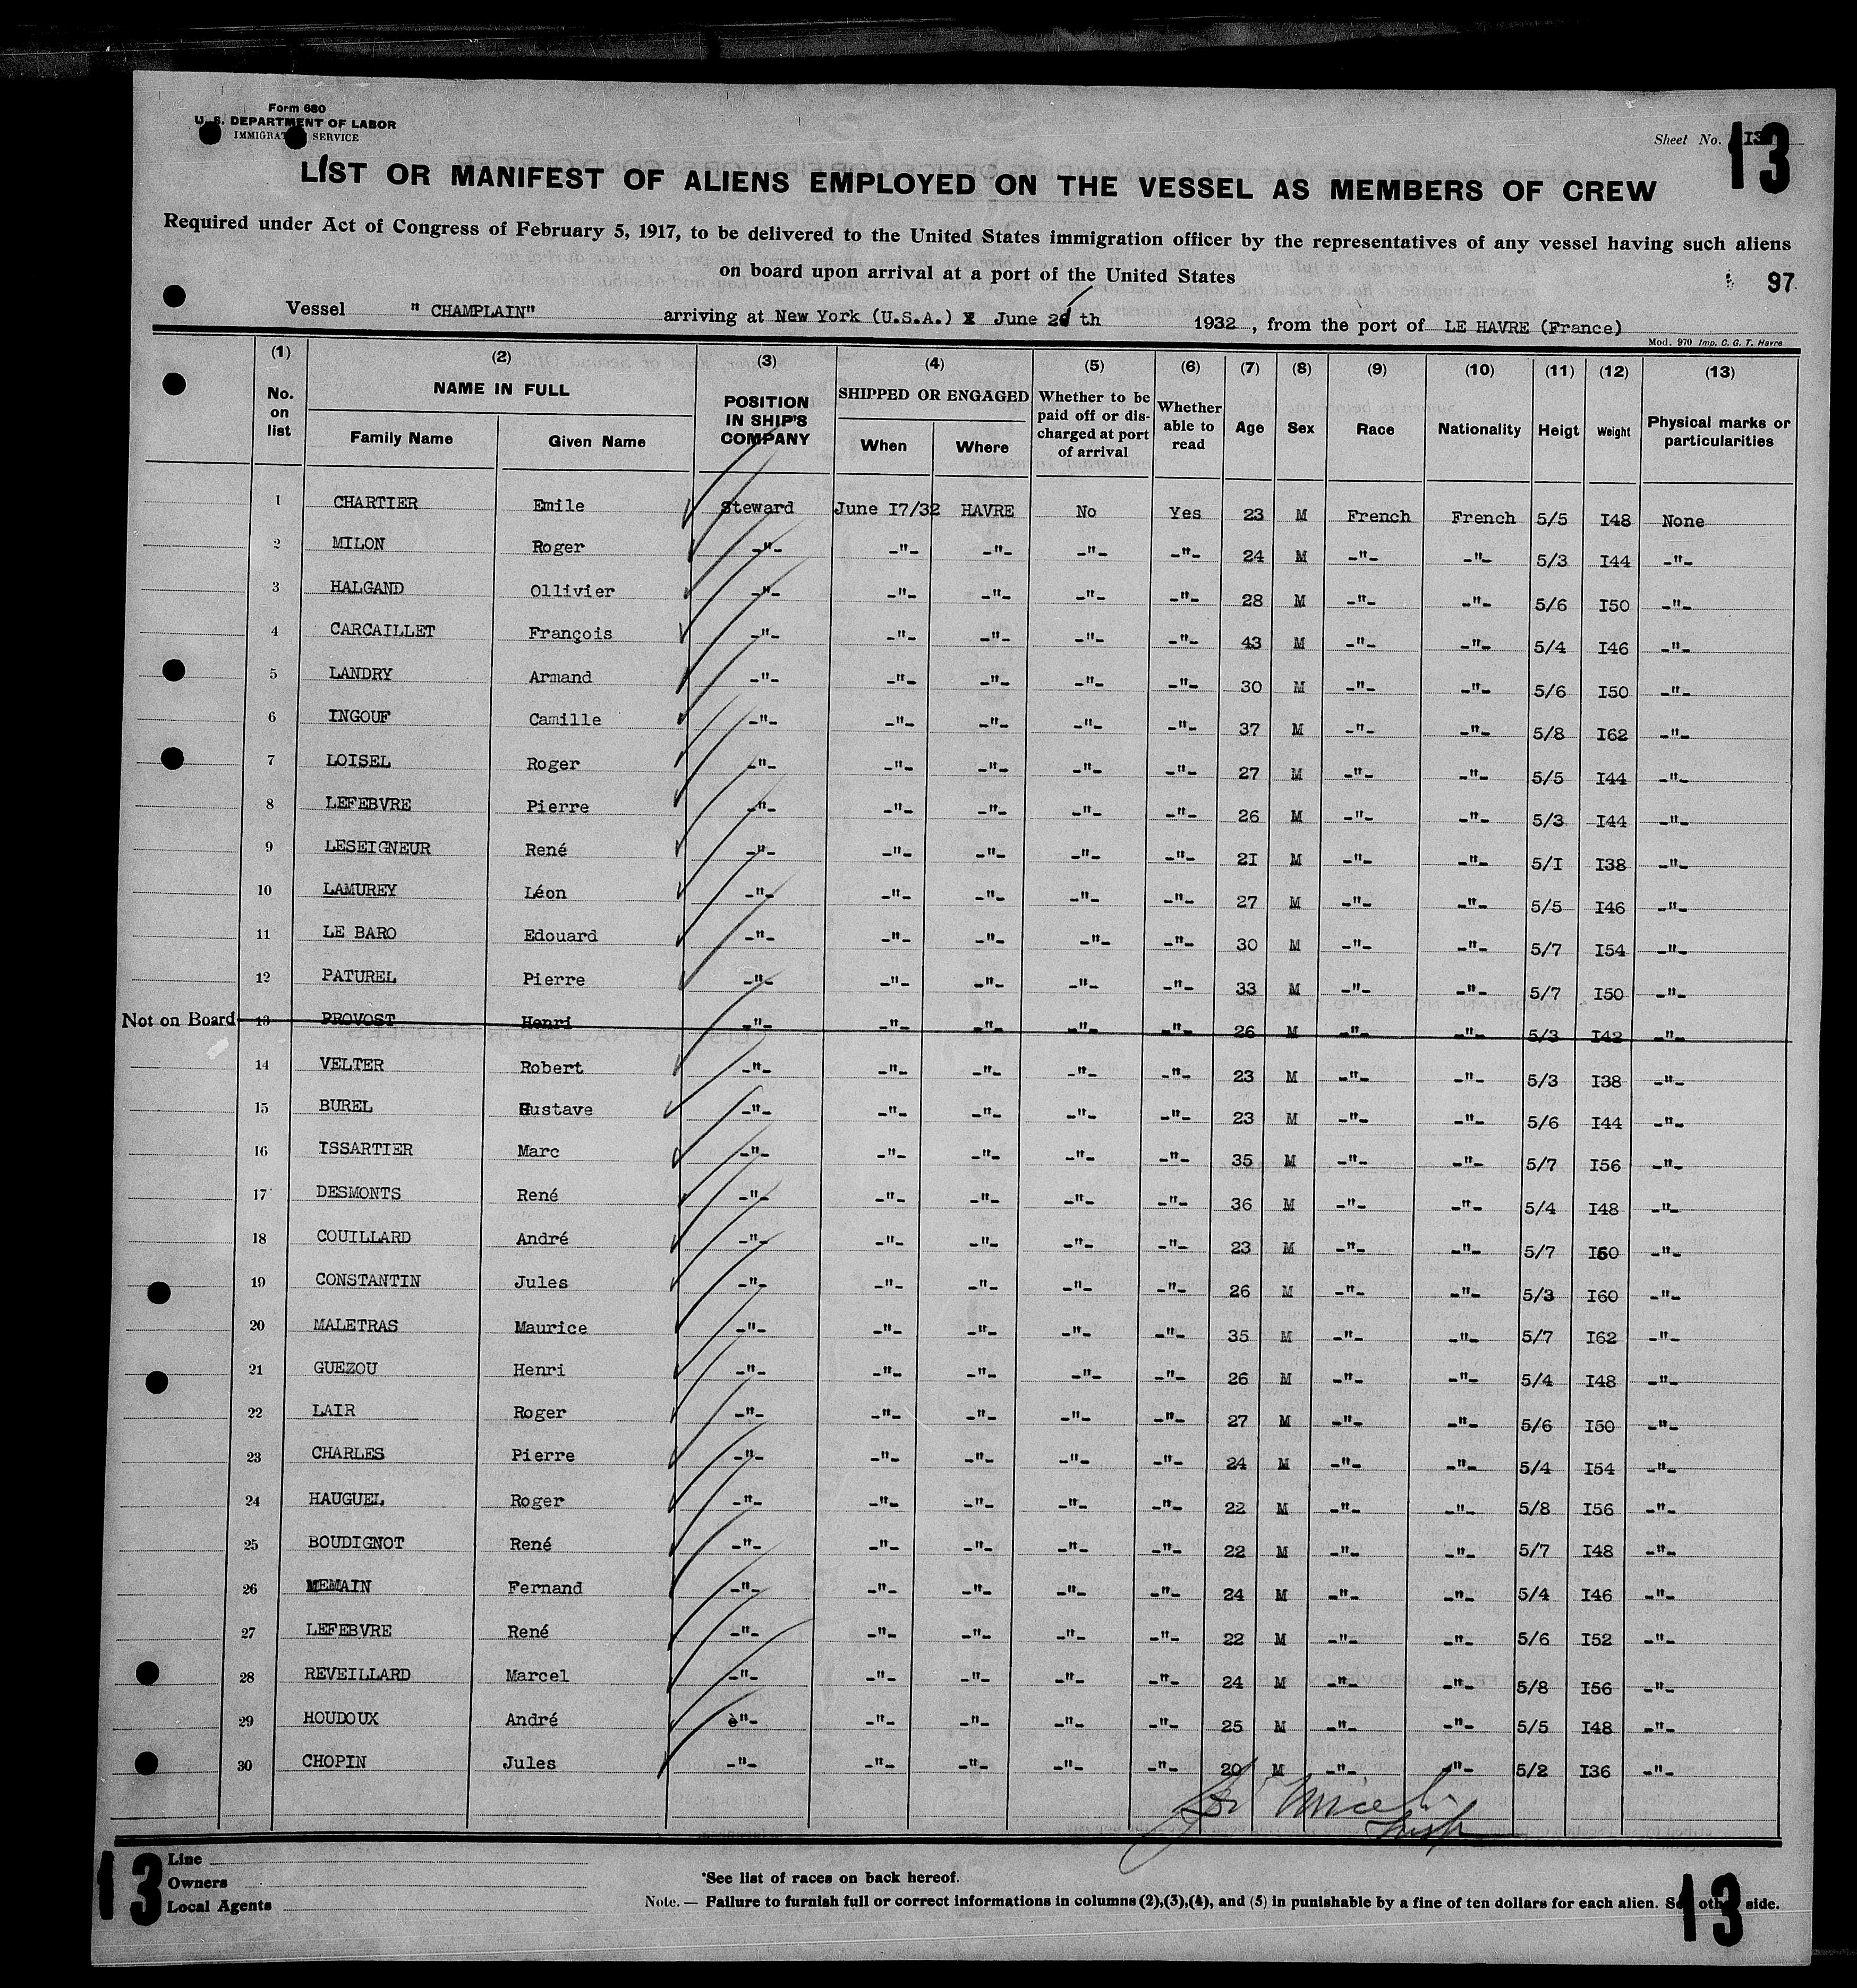 Form 680
U. S. DEPARTMENT OF LABOR
IMMIGRATION SERVICE
Sheet No. I3
13
LIST OR MANIFEST OF ALIENS EMPLOYED ON THE VESSEL AS MEMBERS OF CREW
Required under Act of Congress of February 5, 1917, to be delivered to the United States immigration officer by the representatives of any vessel having such aliens
on board upon arrival at a port of the United States
97
Vessel " CHAMPLAIN" arriving at New York (U.S.A.) June 2 th 1932 , from the port of LE HAVRE (France)
Mod. 970 Imp. C. G. T. Havre
(1) (2) (3) (4) (5) (6) (7) (8) (9) (10) (11) (12) (13)
No. on list NAME IN FULL Family Name Given Name POSITION IN SHIP'S COMPANY SHIPPED OR ENGAGED When Where Whether to be paid off or discharged at port of arrival Whether able to read Age Sex Race Nationality Heigt Weight Physical marks or particularities
1 CHARTIER Emile Steward June I7/32 HAVRE No Yes 23 M French French 5/5 I48 None
2 MILON Roger -"- -"- -"- -"- -"- 24 M -"- -"- 5/3 I44 -"-
3 HALGAND Ollivier -"- -"- -"- -"- -"- 28 M -"- -"- 5/6 I50 -"-
4 CARCAILLET François -"- -"- -"- -"- -"- 43 M -"- -"- 5/4 I46 -"-
5 LANDRY Armand -"- -"- -"- -"- -"- 30 M -"- -"- 5/6 I50 -"-
6 INGOUF Camille -"- -"- -"- -"- -"- 37 M -"- -"- 5/8 I62 -"-
7 LOISEL Roger -"- -"- -"- -"- -"- 27 M -"- -"- 5/5 I44 -"-
8 LEFEBVRE Pierre -"- -"- -"- -"- -"- 26 M -"- -"- 5/3 I44 -"-
9 LESEIGNEUR René -"- -"- -"- -"- -"- 2I M -"- -"- 5/I I38 -"-
10 LAMUREY Léon -"- -"- -"- -"- -"- 27 M -"- -"- 5/5 I46 -"-
11 LE BARO Edouard -"- -"- -"- -"- -"- 30 M -"- -"- 5/7 I54 -"-
12 PATUREL Pierre -"- -"- -"- -"- -"- 33 M -"- -"- 5/7 I50 -"-
Not on Board 13 PROVOST Henri -"- -"- -"- -"- -"- 26 M -"- -"- 5/3 I42 -"-
14 VELTER Robert -"- -"- -"- -"- -"- 23 M -"- -"- 5/3 I38 -"-
15 BUREL Gustave -"- -"- -"- -"- -"- 23 M -"- -"- 5/6 I44 -"-
16 ISSARTIER Marc -"- -"- -"- -"- -"- 35 M -"- -"- 5/7 I56 -"-
17 DESMONTS René -"- -"- -"- -"- -"- 36 M -"- -"- 5/4 I48 -"-
18 COUILLARD André -"- -"- -"- -"- -"- 23 M -"- -"- 5/7 I60 -"-
19 CONSTANTIN Jules -"- -"- -"- -"- -"- 26 M -"- -"- 5/3 I60 -"-
20 MALETRAS Maurice -"- -"- -"- -"- -"- 35 M -"- -"- 5/7 I62 -"-
21 GUEZOU Henri -"- -"- -"- -"- -"- 26 M -"- -"- 5/4 I48 -"-
22 LAIR Roger -"- -"- -"- -"- -"- 27 M -"- -"- 5/6 I50 -"-
23 CHARLES Pierre -"- -"- -"- -"- -"- 24 M -"- -"- 5/4 I54 -"-
24 HAUGUEL Roger -"- -"- -"- -"- -"- 22 M -"- -"- 5/8 I56 -"-
25 BOUDIGNOT René -"- -"- -"- -"- -"- 22 M -"- -"- 5/7 I48 -"-
26 MEMAIN Fernand -"- -"- -"- -"- -"- 24 M -"- -"- 5/4 I46 -"-
27 LEFEBVRE René -"- -"- -"- -"- -"- 22 M -"- -"- 5/6 I52 -"-
28 REVEILLARD Marcel -"- -"- -"- -"- -"- 24 M -"- -"- 5/8 I56 -"-
29 HOUDOUX André è"- -"- -"- -"- -"- 25 M -"- -"- 5/5 I48 -"-
30 CHOPIN Jules -"- -"- -"- -"- -"- 20 M -"- -"- 5/2 I36 -"-
13
Line
Owners
Local Agents
*See list of races on back hereof.
Note. — Failure to furnish full or correct informations in columns (2),(3),(4), and (5) in punishable by a fine of ten dollars for each alien. See other side.
13